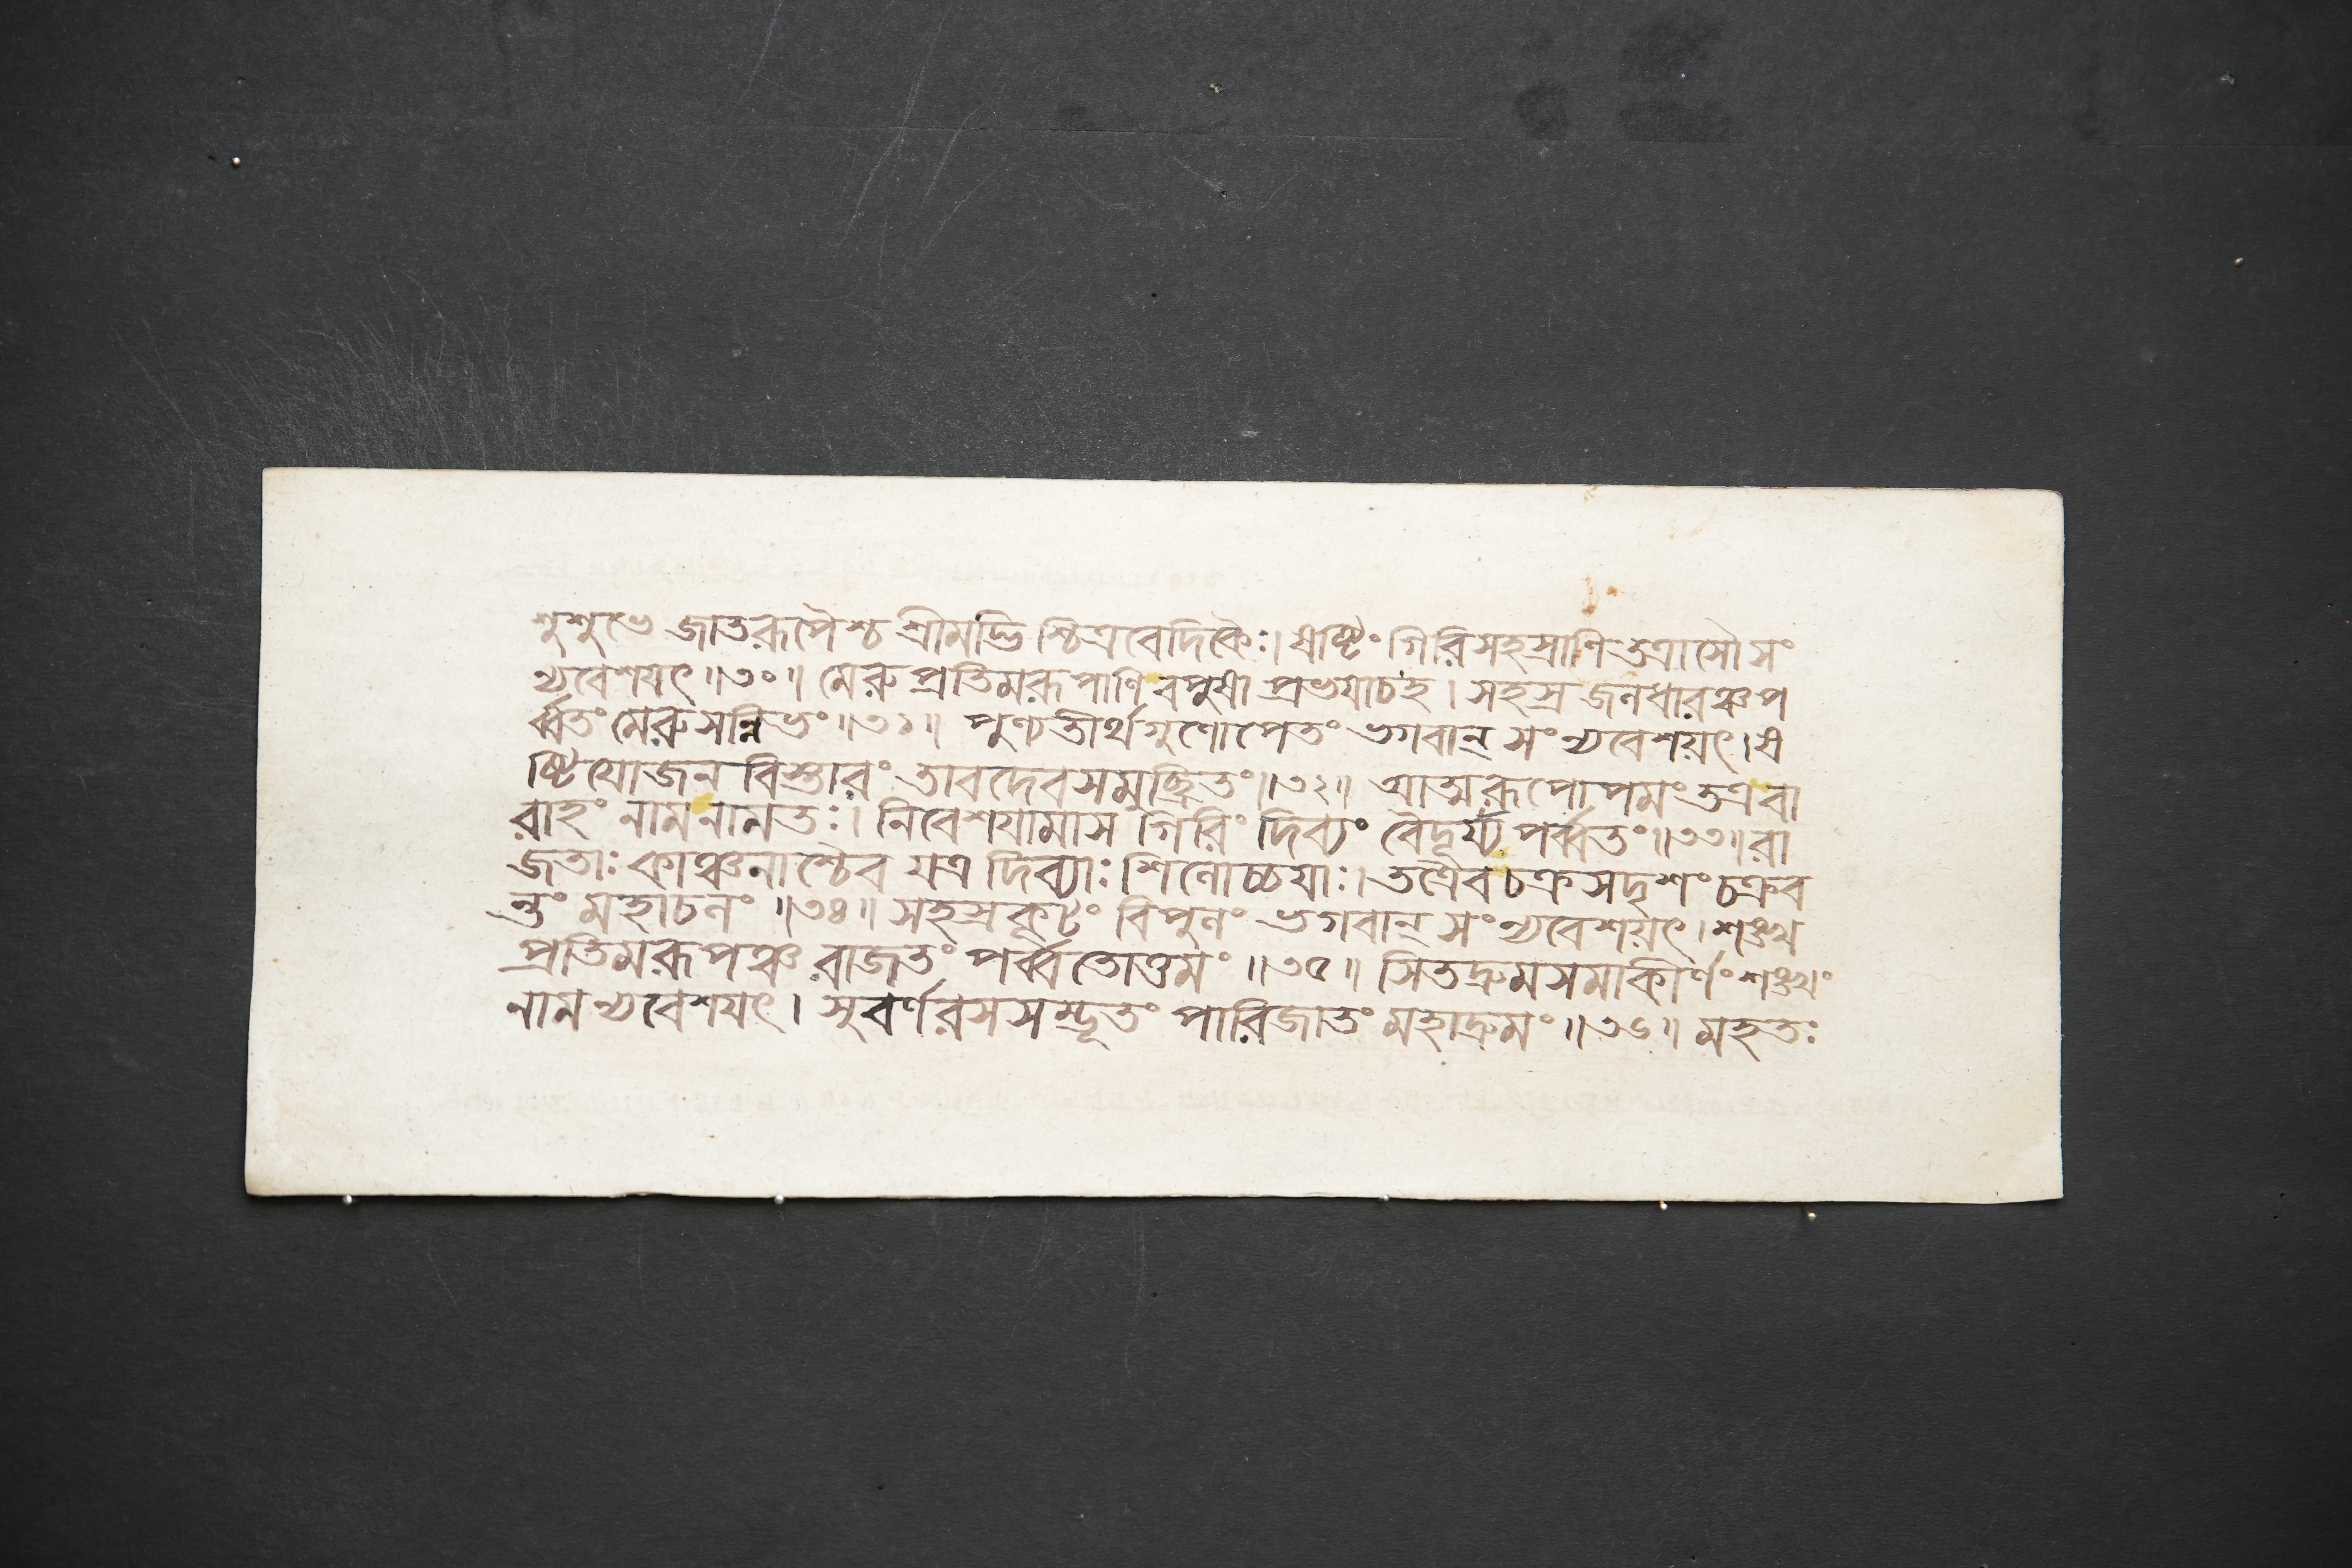 শুশুভে জাতরূপৈশ্চ শ্রীমদ্ভি শ্চিত্রবেদিকৈঃ। ষষ্টিং গিরিসহস্রাণি তত্রাসৌ সং
ন্যবেশয়ৎ॥৩০॥ মেরু প্রতিমরূপাণি বপুষা প্রভযাচহ। সহস্র জলধারঞ্চ প
র্ব্বতং মেরুসন্নিভং॥৩১॥ পুণ্যতীর্থগুণোপেতং ভগবান্ সংন্যবেশয়ৎ। ষ
ষ্টিযোজন বিস্তারং তাবদেবসমুচ্ছ্রিতং॥৩২॥ আত্মরূপোপমং তত্র বা
রাহং নাম নামতঃ। নিবেশযামাস গিরিং দিব্যং বৈদূর্য্য পর্ব্বতং॥৩৩॥ রা
জতাঃ কাঞ্চনাশ্চৈব যত্র দিব্যাঃ শিলোচ্চযাঃ। তত্রৈব চক্রসদৃশং চক্রব
ন্তং মহাচলং॥৩৪॥ সহস্রকূটং বিপুলং ভগবান্ সংন্যবেশয়ৎ। শঙ্খ
প্রতিমরূপঞ্চ রাজতং পর্ব্বতোত্তমং॥৩৫॥ সিতদ্রুমসমাকীর্ণং শঙ্খং
নাম ন্যবেশযৎ। সুবর্ণরসসম্ভূতং পারিজাতং মহাদ্রুমং॥৩৬॥ মহতঃ